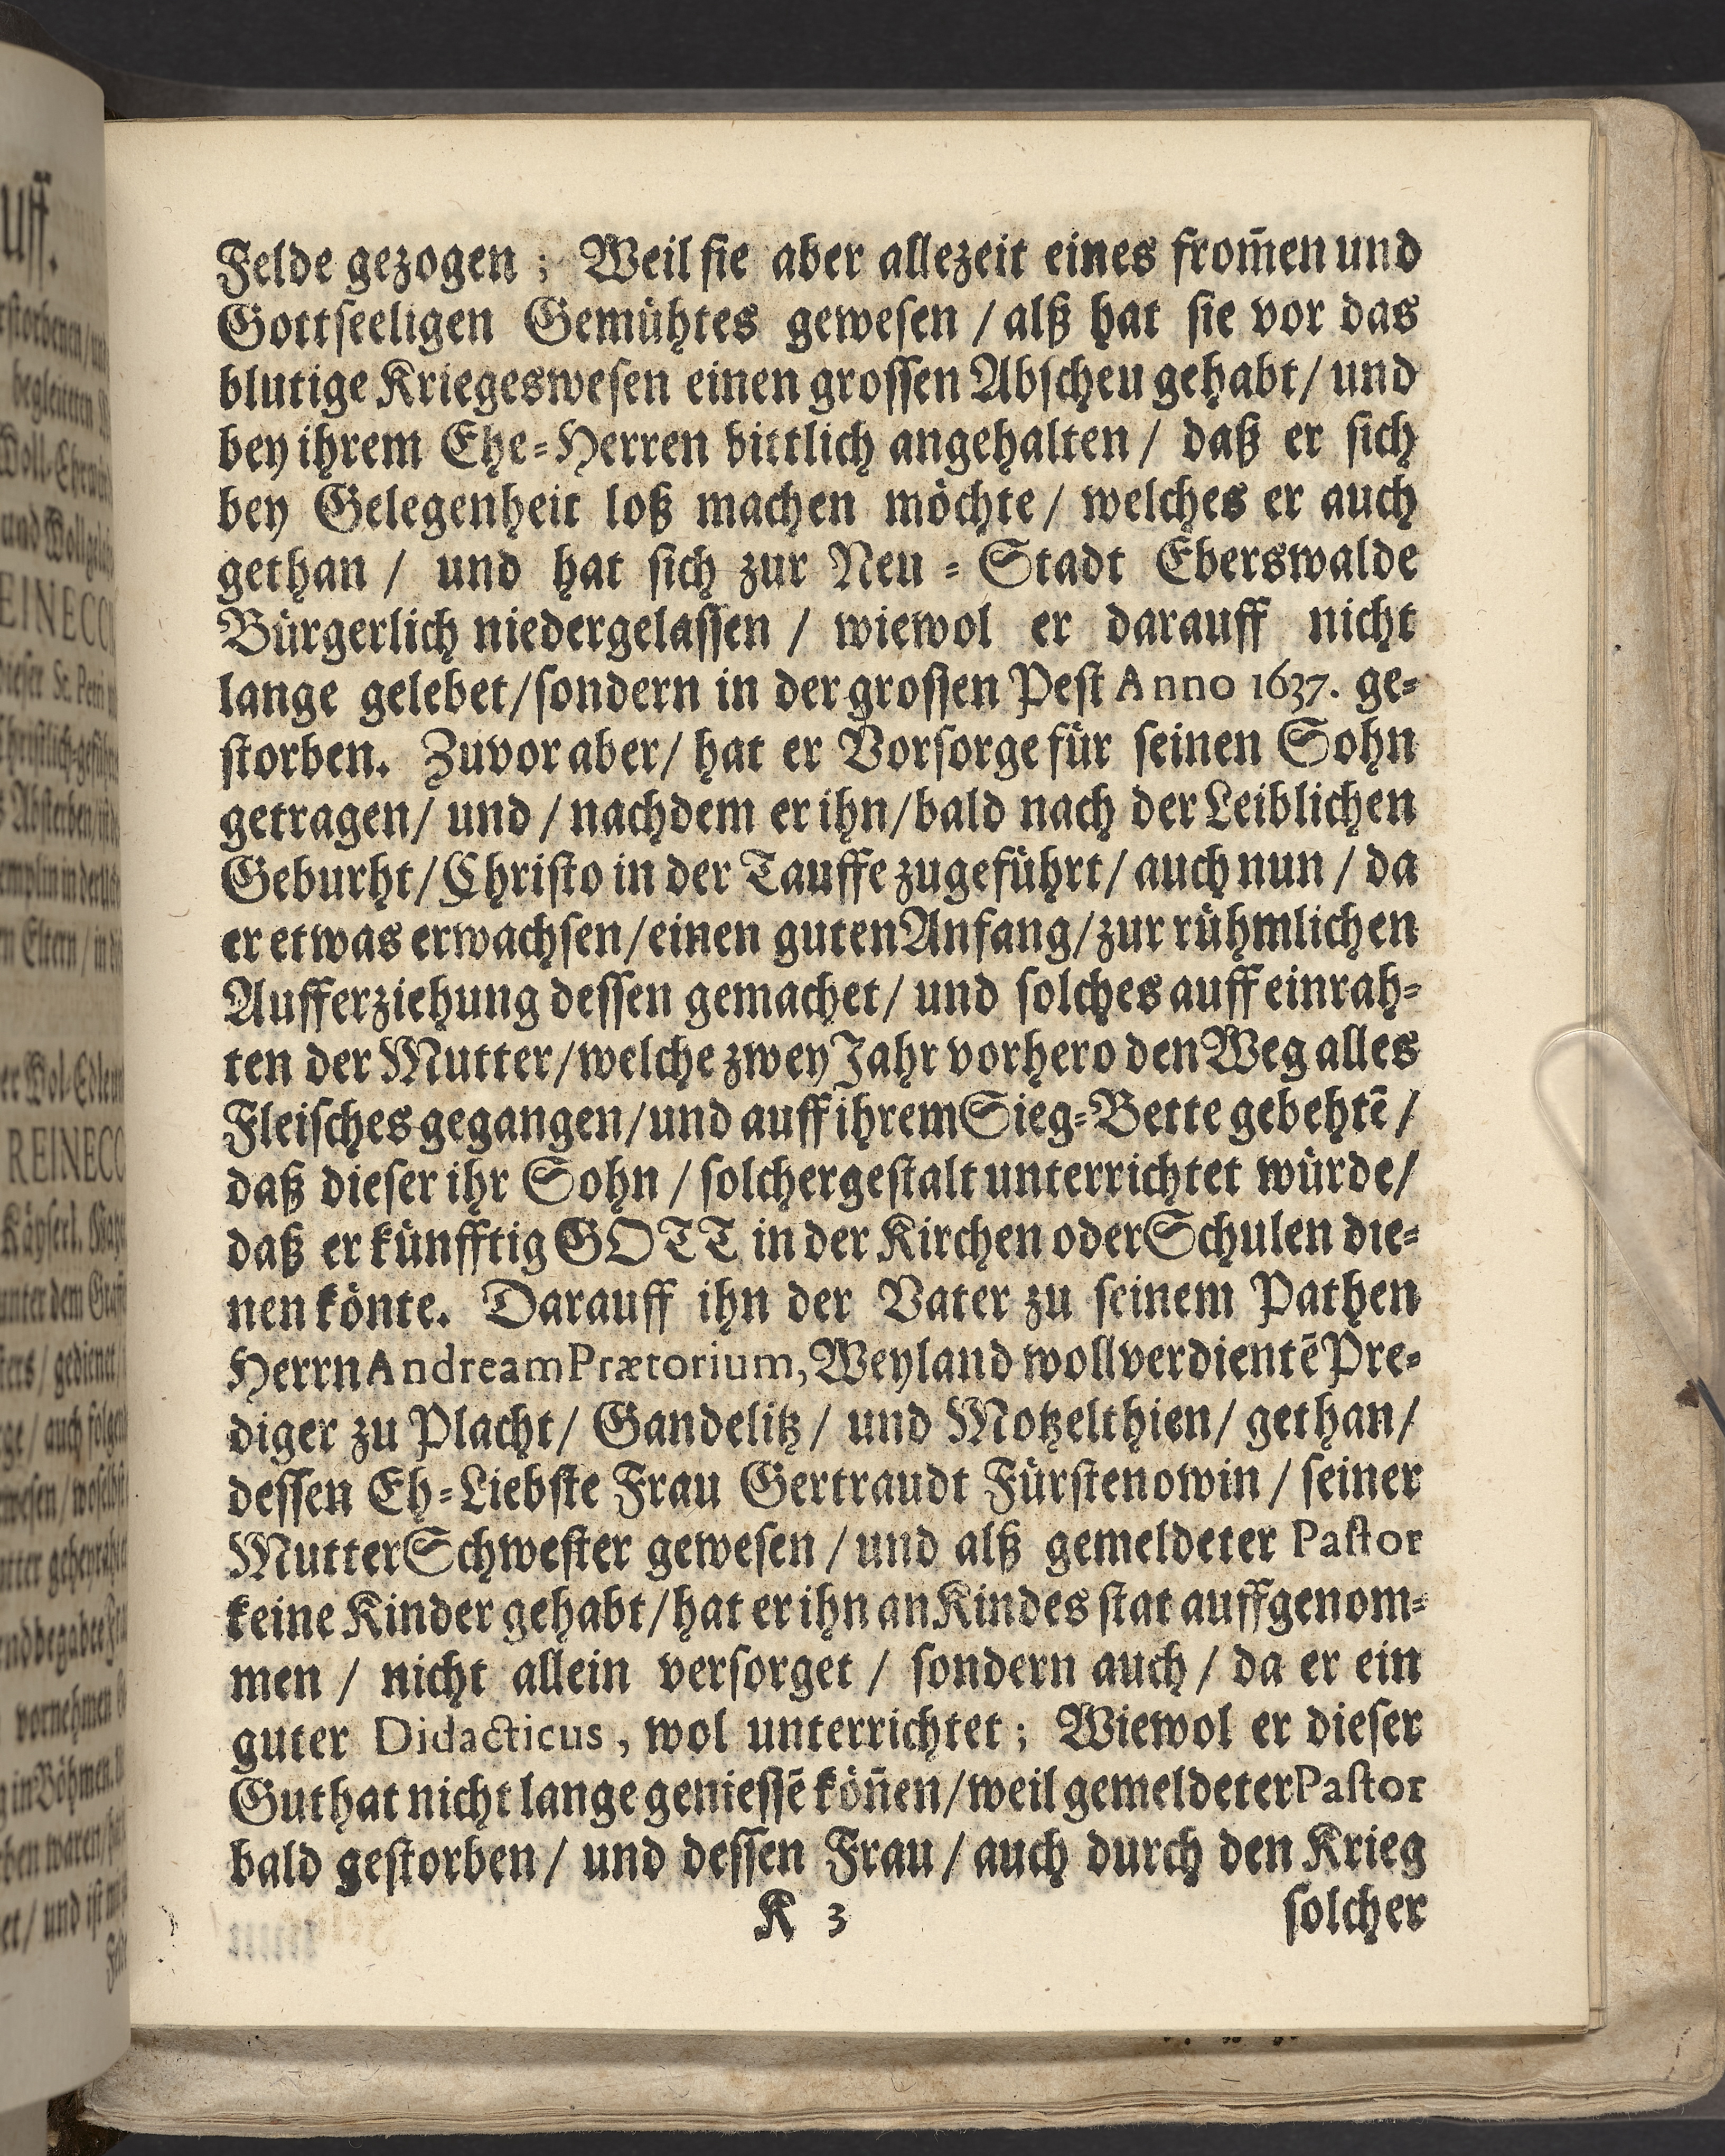 Felde gezogen; Weil sie aber allezeit eines from̃en und
Gottseeligen Gemühtes gewesen / alß hat sie vor das
blutige Kriegeswesen einen grossen Abscheu gehabt / und
bey ihrem Ehe=Herren bittlich angehalten / daß er sich
bey Gelegenheit loß machen möchte / welches er auch
gethan / und hat sich zur Neu = Stadt Eberswalde
Bürgerlich niedergelassen / wiewol er darauff nicht
lange gelebet / sondern in der grossen Pest Anno 1637. ge=
storben. Zuvor aber / hat er Vorsorge für seinen Sohn
getragen / und / nachdem er ihn / bald nach der Leiblichen
Geburht / Christo in der Tauffe zugeführt / auch nun / da
er etwas erwachsen / einen guten Anfang / zur rühmlichen
Aufferziehung dessen gemachet / und solches auff einrah=
ten der Mutter / welche zwey Jahr vorhero den Weg alles
Fleisches gegangen / und auff ihrem Sieg=Bette gebehtẽ /
daß dieser ihr Sohn / solchergestalt unterrichtet würde /
daß er künfftig GOTT in der Kirchen oder Schulen die=
nen könte. Darauff ihn der Vater zu seinem Pathen
Herrn Andream Prætorium, Weyland wollverdientẽ Pre=
diger zu Placht / Gandelitz / und Motzelthien / gethan /
dessen Eh=Liebste Frau Gertraudt Fürstenowin / seiner
Mutter Schwester gewesen / und alß gemeldeter Pastor
keine Kinder gehabt / hat er ihn an Kindes stat auffgenom=
men / nicht allein versorget / sondern auch / da er ein
guter Didacticus, wol unterrichtet; Wiewol er dieser
Guthat nicht lange geniessẽ köñen / weil gemeldeter Pastor
bald gestorben / und dessen Frau / auch durch den Krieg
K 3 solcher